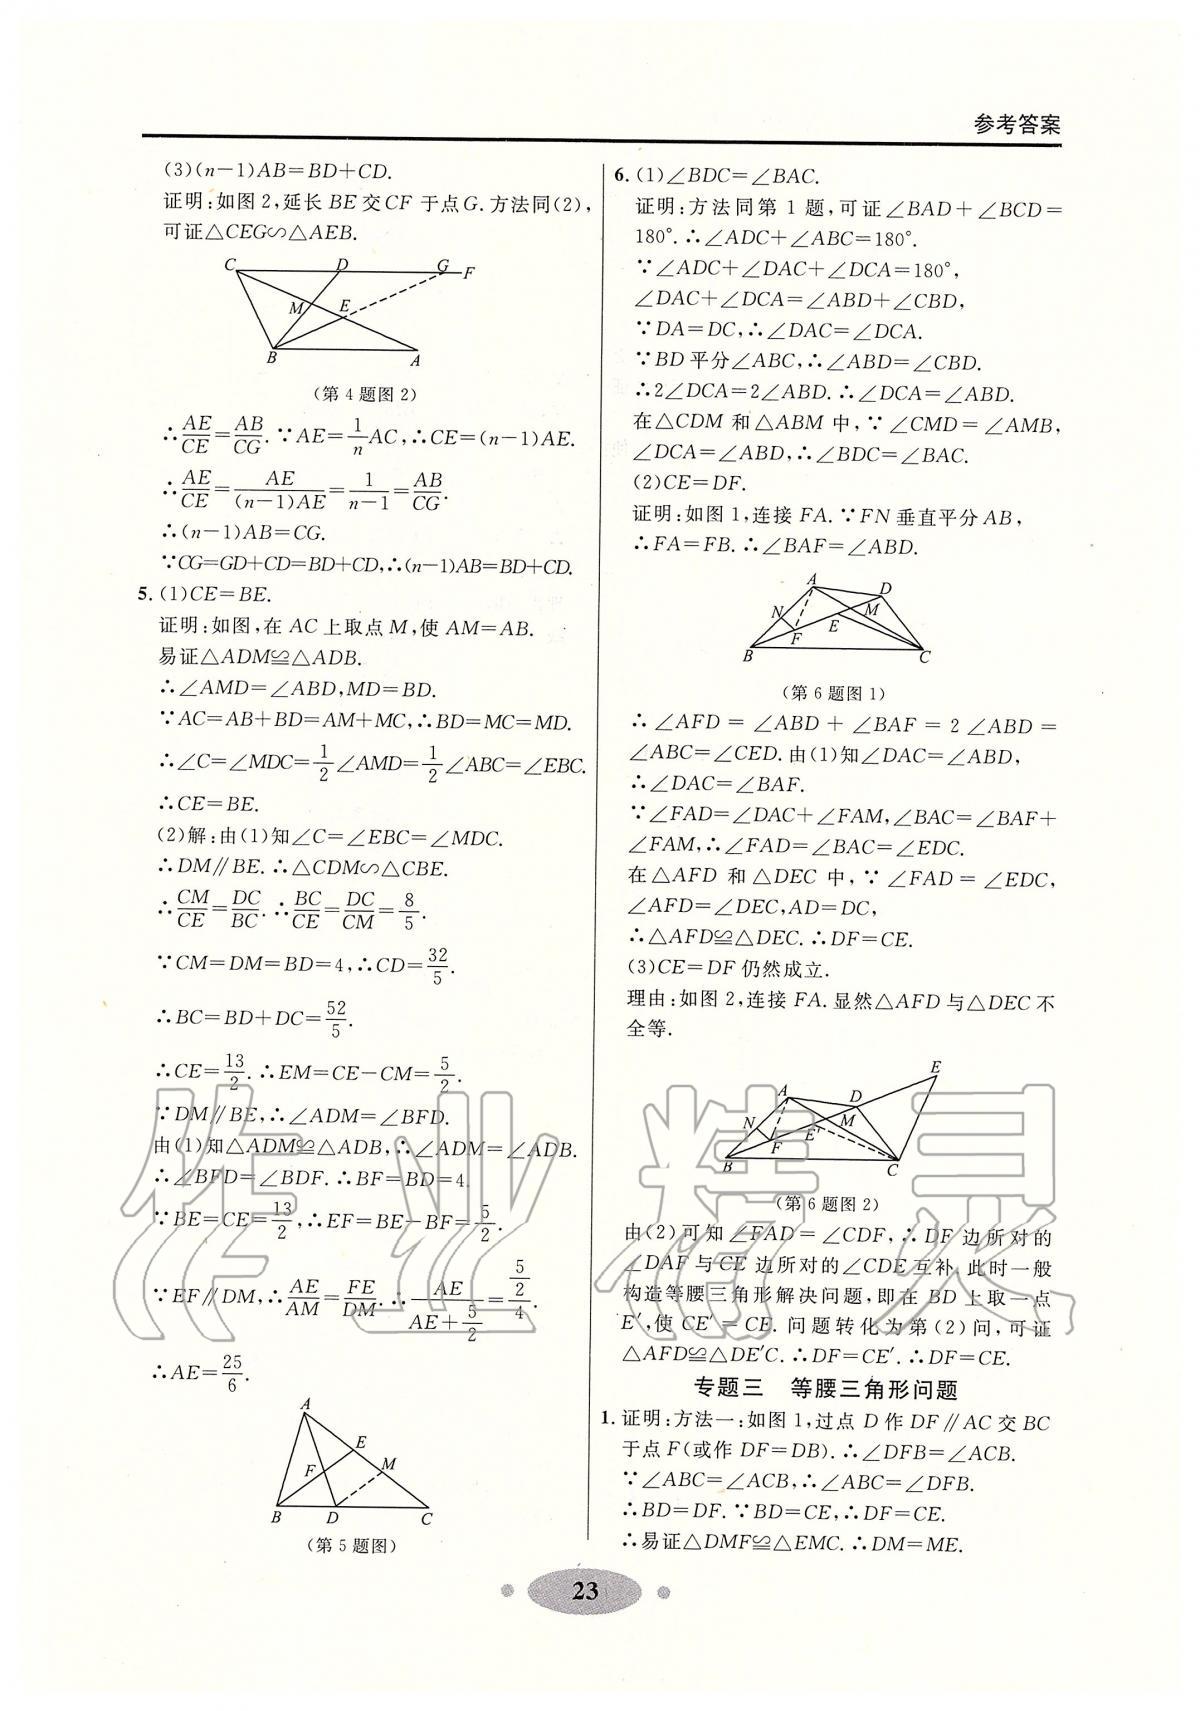 参考答案
(3)(n-1)AB=BD+CD.
证明:如图2,延长BE交CF于点G.方法同(2),
可证△CEG∽△AEB.
C D G F
M E
B A
(第4题图2)
∴AE/CE=AB/CG.∵AE=1/n AC,∴CE=(n-1)AE.
∴AE/CE=AE/(n-1)AE=1/n-1=AB/CG.
∴(n-1)AB=CG.
∵CG=GD+CD=BD+CD,∴(n-1)AB=BD+CD.
5.(1)CE=BE.
证明:如图,在AC上取点M,使AM=AB.
易证△ADM≌△ADB.
∴∠AMD=∠ABD,MD=BD.
∵AC=AB+BD=AM+MC,∴BD=MC=MD.
∴∠C=∠MDC=1/2∠AMD=1/2∠ABC=∠EBC.
∴CE=BE.
(2)解:由(1)知∠C=∠EBC=∠MDC.
∴DM∥BE.∴△CDM∽△CBE.
∴CM/CE=DC/BC.∴BC/CE=DC/CM=8/5.
∵CM=DM=BD=4,∴CD=32/5.
∴BC=BD+DC=52/5.
∴CE=13/2.∴EM=CE-CM=5/2.
∵DM∥BE,∴∠ADM=∠BFD.
由(1)知△ADM≌△ADB,∴∠ADM=∠ADB.
∴∠BFD=∠BDF.∴BF=BD=4.
∵BE=CE=13/2,∴EF=BE-BF=5/2.
∵EF∥DM,∴AE/AM=FE/DM.∴AE/(AE+5/2)=(5/2)/4.
∴AE=25/6.
A
E
F M
B D C
(第5题图)
6.(1)∠BDC=∠BAC.
证明:方法同第1题,可证∠BAD+∠BCD=
180°.∴∠ADC+∠ABC=180°.
∵∠ADC+∠DAC+∠DCA=180°,
∠DAC+∠DCA=∠ABD+∠CBD,
∵DA=DC,∴∠DAC=∠DCA.
∵BD平分∠ABC,∴∠ABD=∠CBD.
∴2∠DCA=2∠ABD.∴∠DCA=∠ABD.
在△CDM和△ABM中,∵∠CMD=∠AMB,
∠DCA=∠ABD,∴∠BDC=∠BAC.
(2)CE=DF.
证明:如图1,连接FA.∵FN垂直平分AB,
∴FA=FB.∴∠BAF=∠ABD.
A D
N M
F E
B C
(第6题图1)
∴∠AFD=∠ABD+∠BAF=2∠ABD=
∠ABC=∠CED.由(1)知∠DAC=∠ABD,
∴∠DAC=∠BAF.
∵∠FAD=∠DAC+∠FAM,∠BAC=∠BAF+
∠FAM,∴∠FAD=∠BAC=∠EDC.
在△AFD和△DEC中,∵∠FAD=∠EDC,
∠AFD=∠DEC,AD=DC,
∴△AFD≌△DEC.∴DF=CE.
(3)CE=DF仍然成立.
理由:如图2,连接FA.显然△AFD与△DEC不
全等.
E
A D
N M
F E′
B C
(第6题图2)
由(2)可知∠FAD=∠CDF,∴DF边所对的
∠DAF与CE边所对的∠CDE互补.此时一般
构造等腰三角形解决问题,即在BD上取一点
E′,使CE′=CE.问题转化为第(2)问,可证
△AFD≌△DE′C.∴DF=CE′.∴DF=CE.
专题三 等腰三角形问题
1.证明:方法一:如图1,过点D作DF∥AC交BC
于点F(或作DF=DB).∴∠DFB=∠ACB.
∵∠ABC=∠ACB,∴∠ABC=∠DFB.
∴BD=DF.∵BD=CE,∴DF=CE.
∴易证△DMF≌△EMC.∴DM=ME.
23
作业精灵